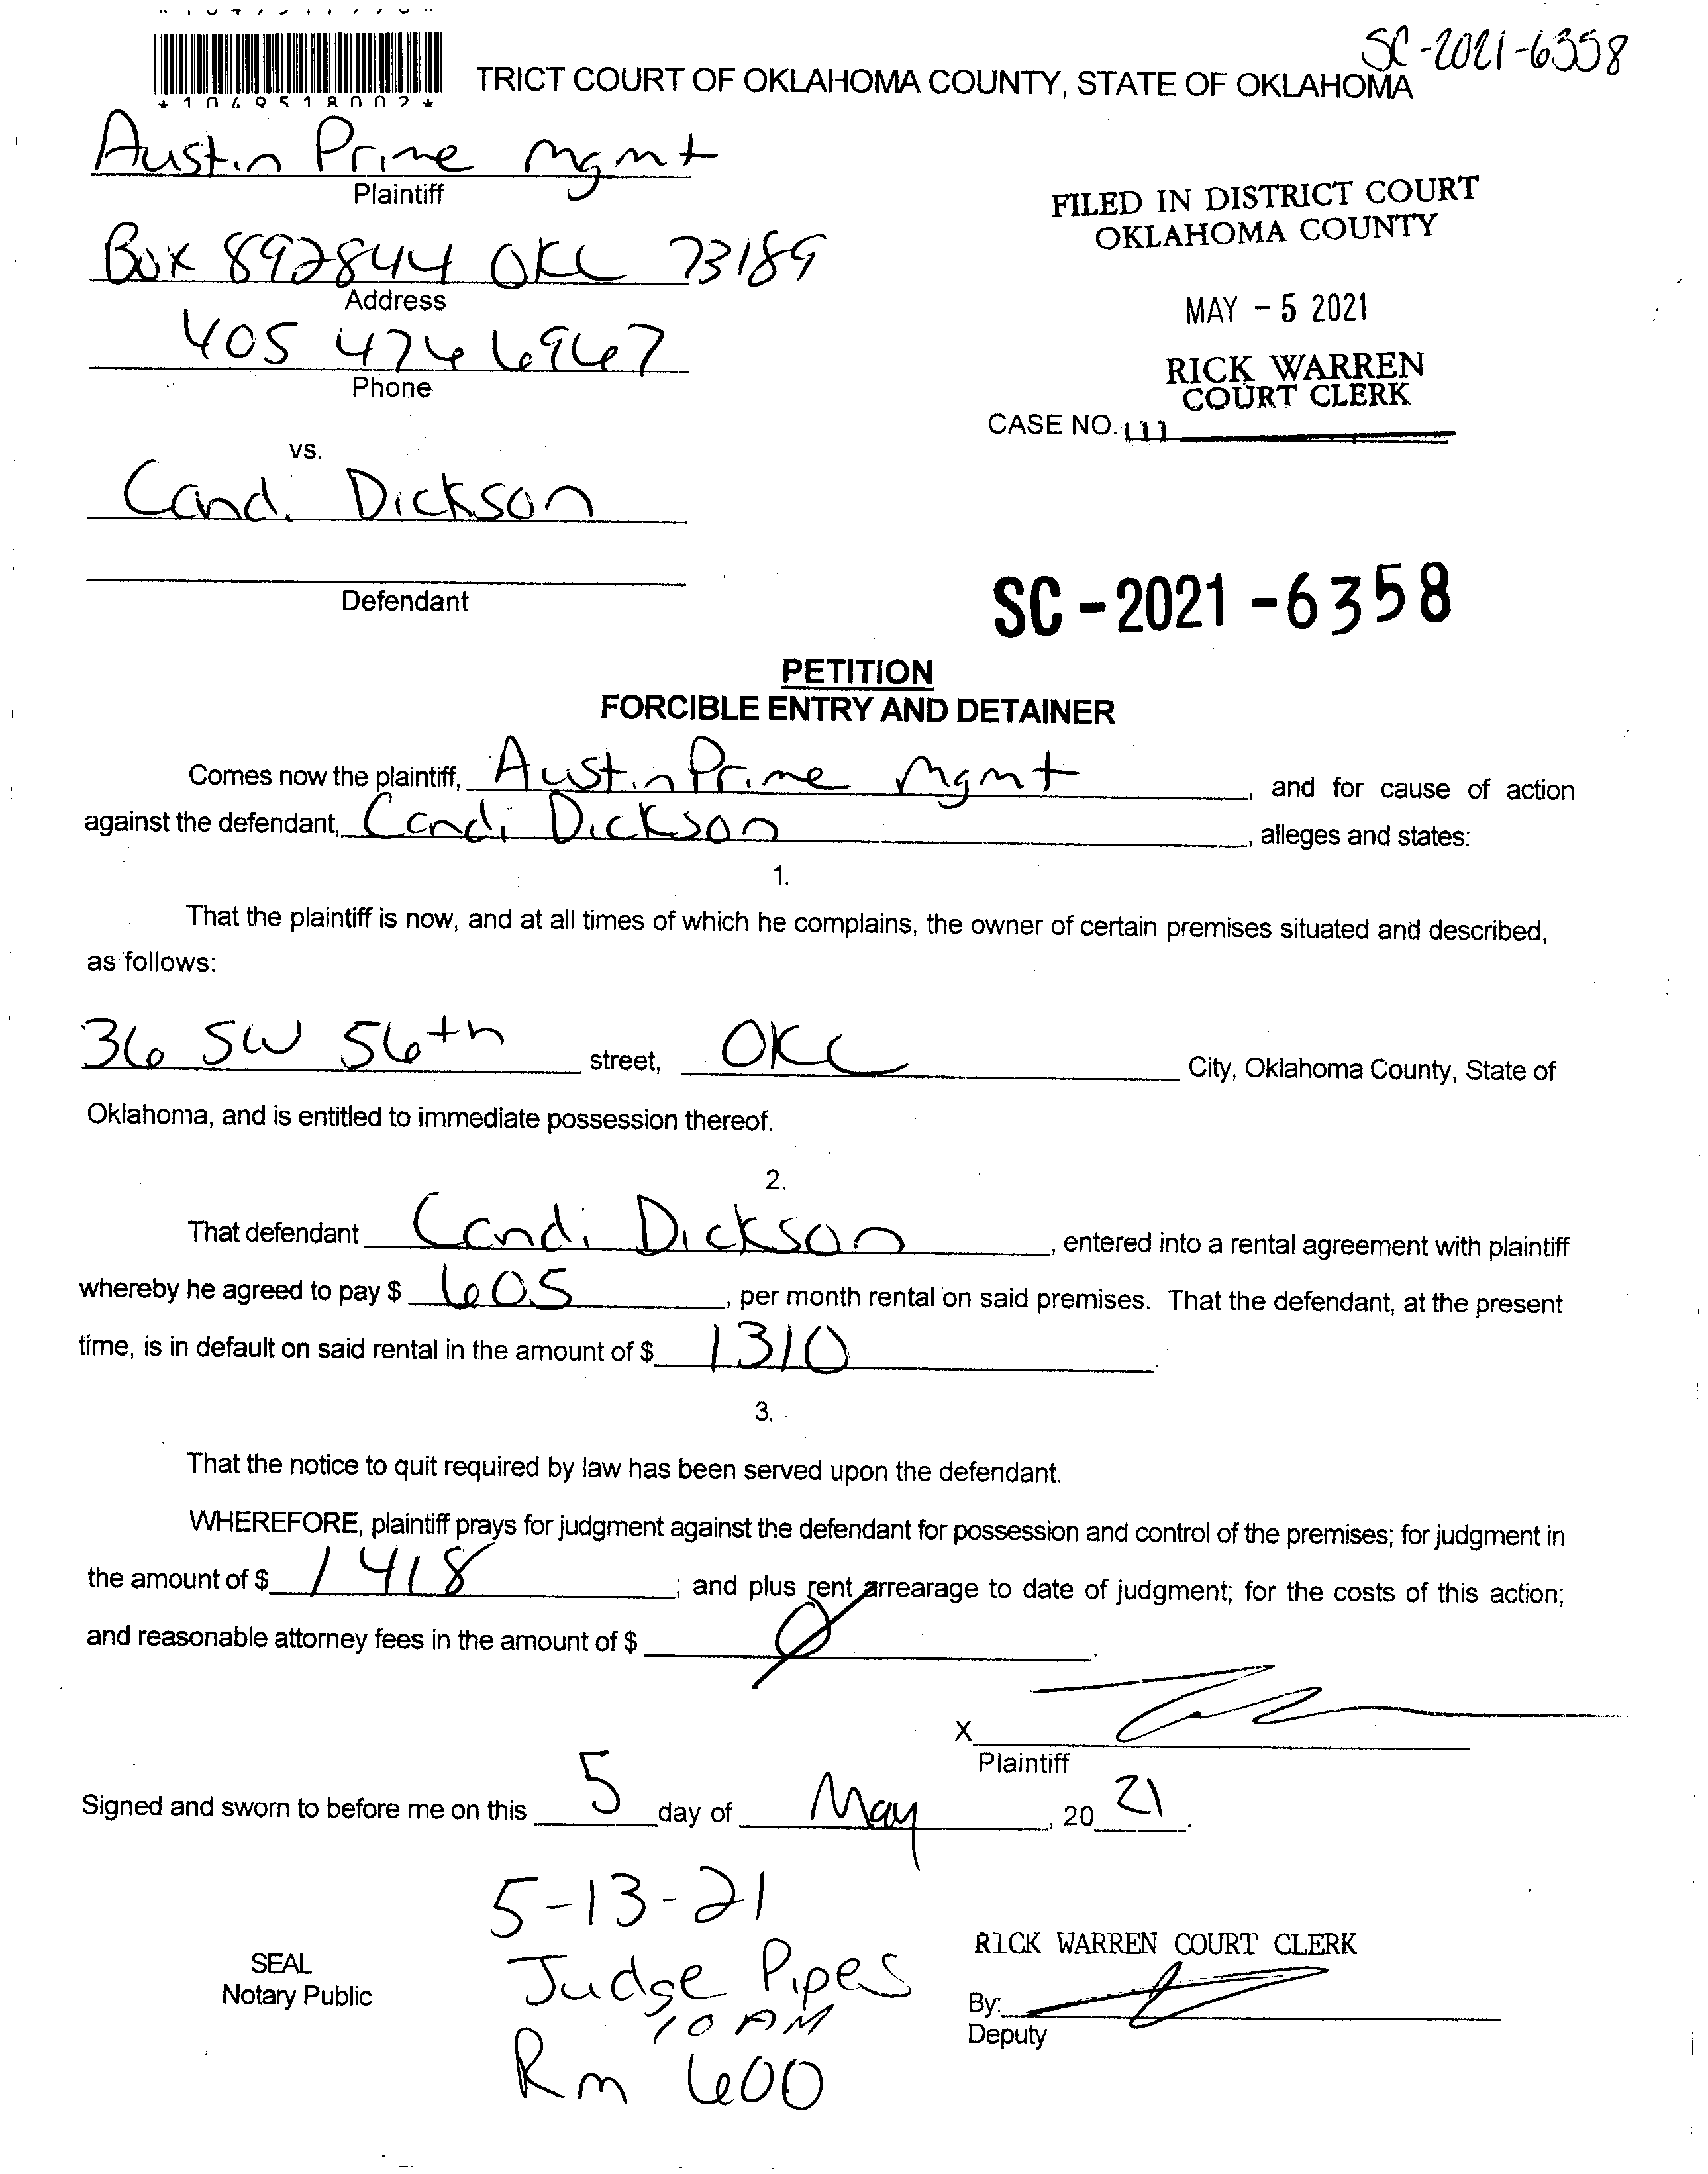 SC-2021-6358
*1049518002*
TRICT COURT OF OKLAHOMA COUNTY, STATE OF OKLAHOMA
Austin Prime Mgmt
Plaintiff
FILED IN DISTRICT COURT
OKLAHOMA COUNTY
Box 892844 OKC 73189
Address
MAY - 5 2021
405 474 6967
Phone
RICK WARREN
COURT CLERK
CASE NO. 111
vs.
Candi Dickson
Defendant
SC-2021-6358
PETITION
FORCIBLE ENTRY AND DETAINER
Comes now the plaintiff, Austin Prime Mgmt, and for cause of action
against the defendant, Candi Dickson, alleges and states:
1.
That the plaintiff is now, and at all times of which he complains, the owner of certain premises situated and described,
as follows:
36 SW 56th street, OKC City, Oklahoma County, State of
Oklahoma, and is entitled to immediate possession thereof.
2.
That defendant Candi Dickson, entered into a rental agreement with plaintiff
whereby he agreed to pay $ 605, per month rental on said premises. That the defendant, at the present
time, is in default on said rental in the amount of $ 1310.
3.
That the notice to quit required by law has been served upon the defendant.
WHEREFORE, plaintiff prays for judgment against the defendant for possession and control of the premises; for judgment in
the amount of $ 1418; and plus rent arrearage to date of judgment; for the costs of this action;
and reasonable attorney fees in the amount of $ 0.
X
Plaintiff
Signed and sworn to before me on this 5 day of May, 2021.
5-13-21
Judge Pipes
10 AM
Rm 600
SEAL
Notary Public
RICK WARREN COURT CLERK
By:
Deputy